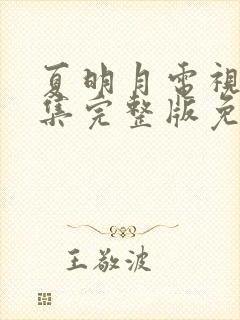 夏明月電視
集完整版免
王敬波